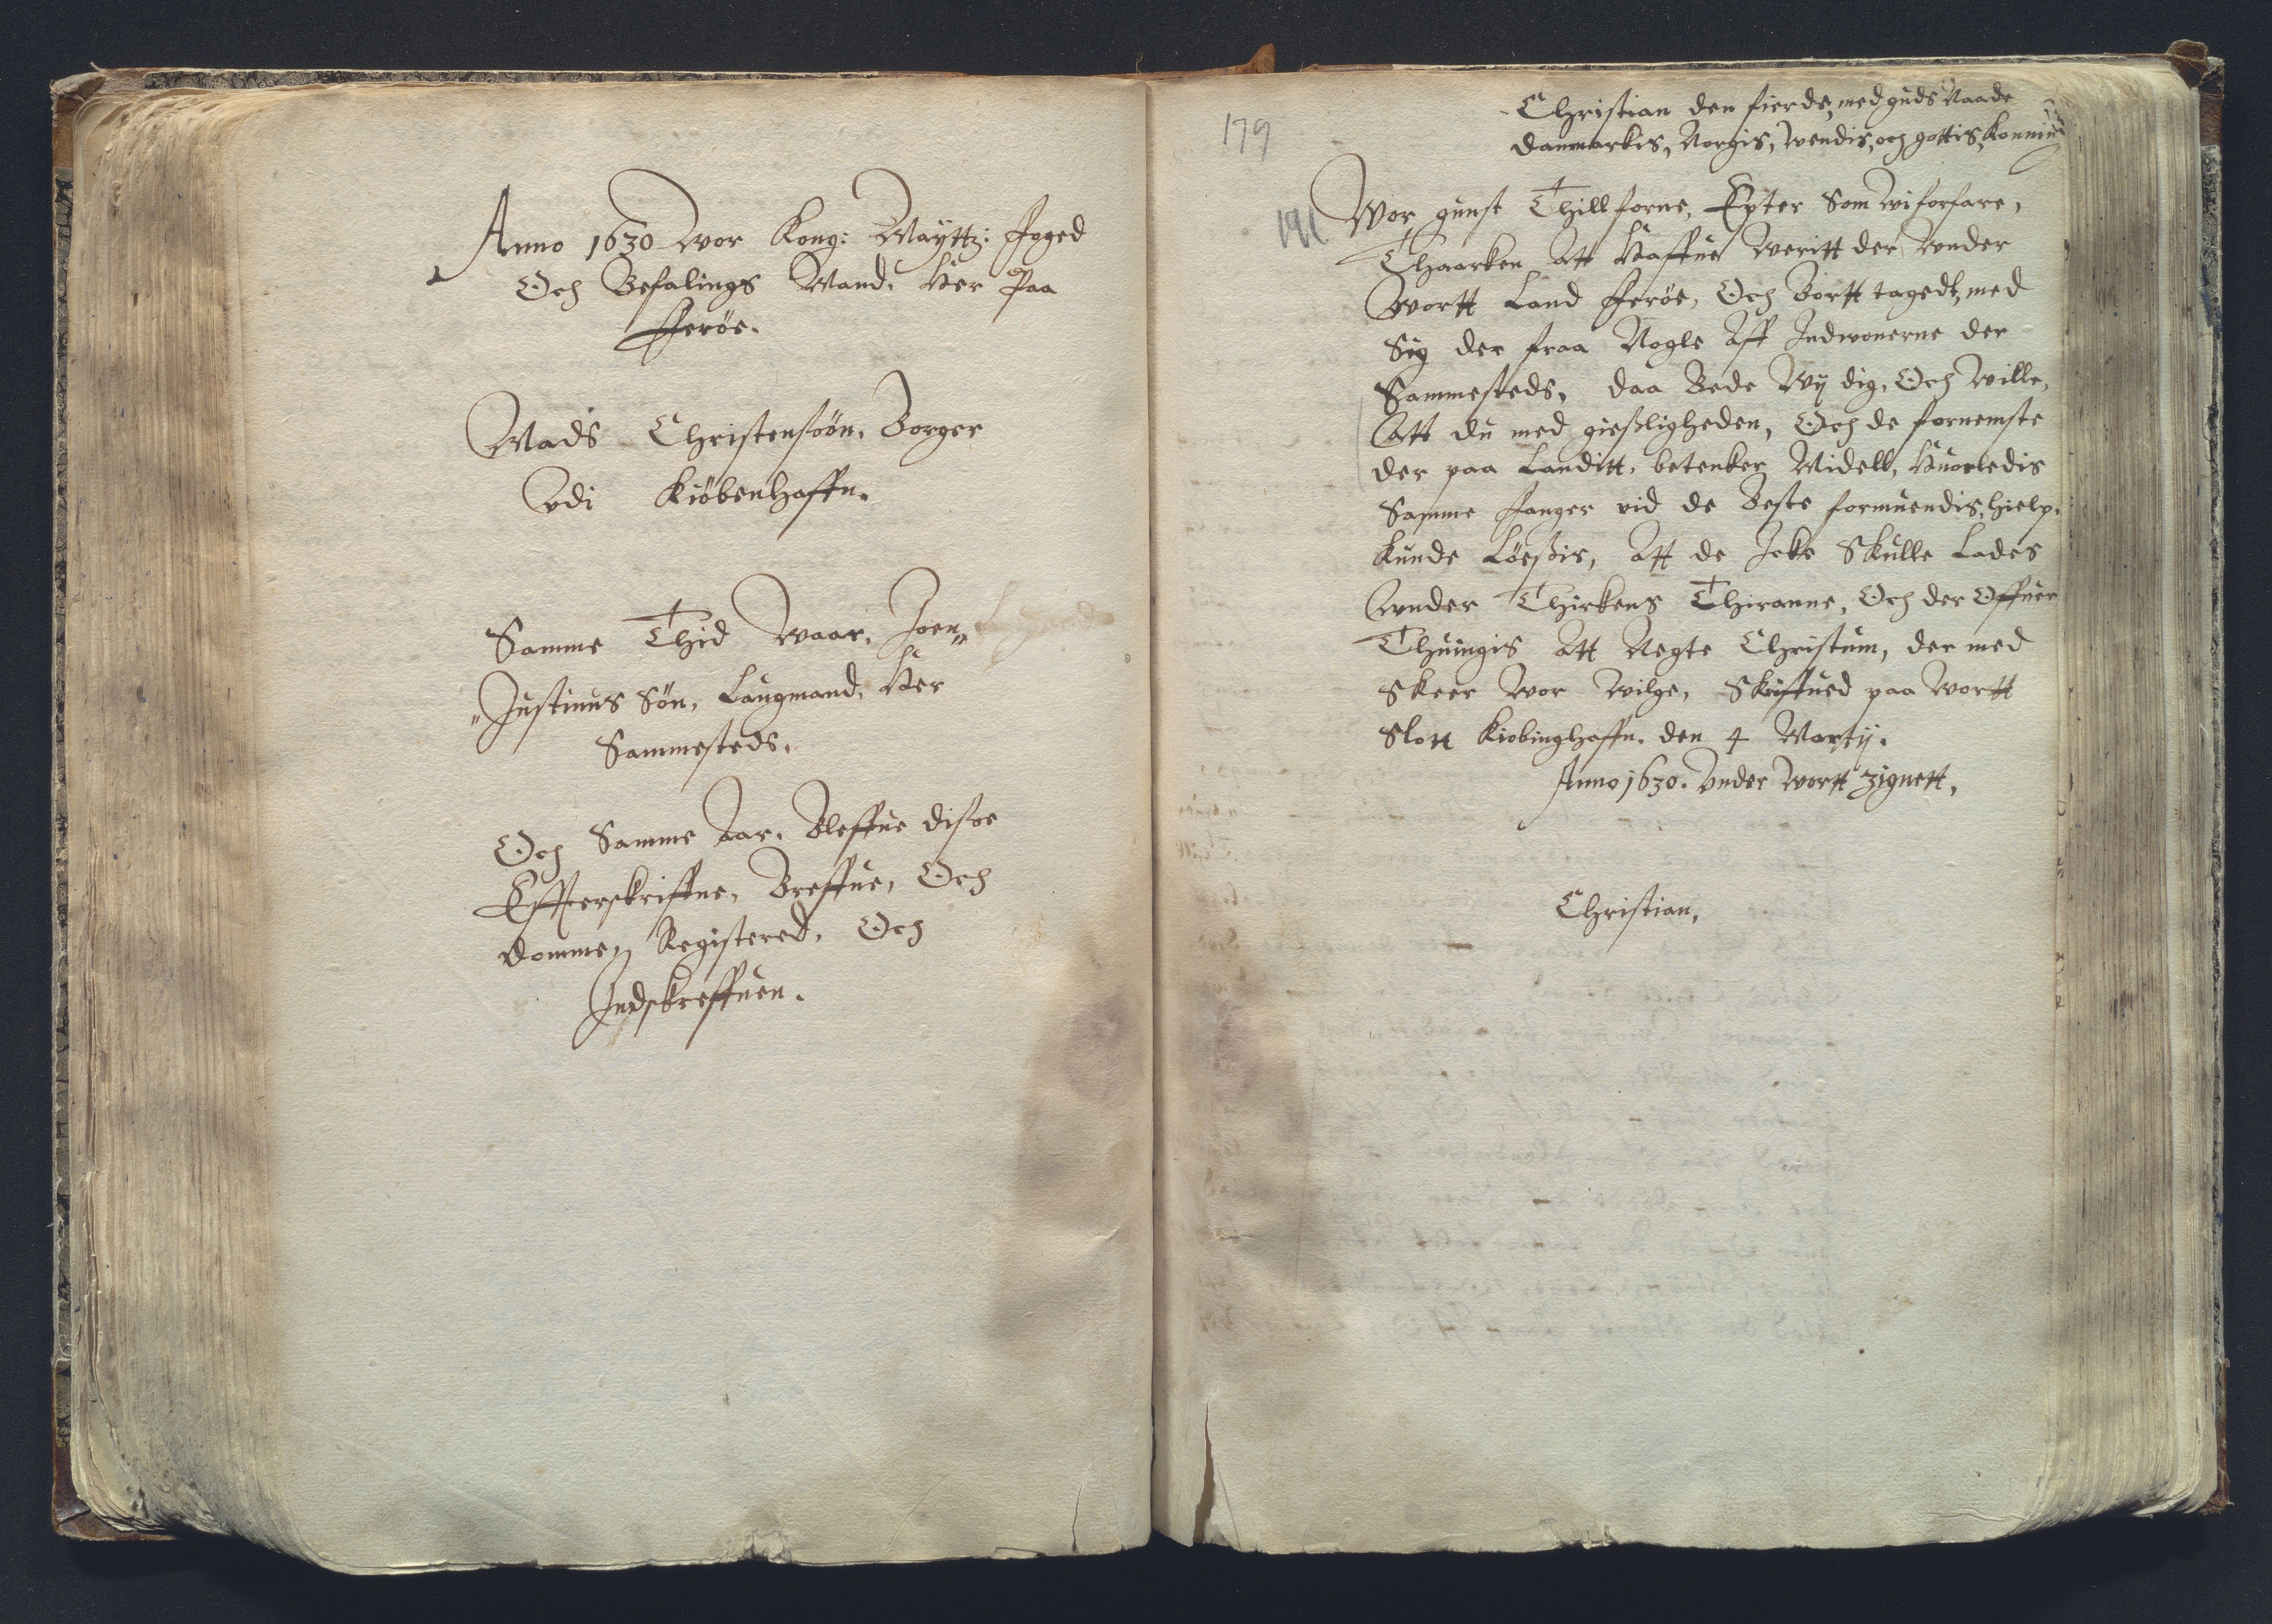 Anno 1630 Wor Kong: Mayttz: Foged
Och Befalings Mand, Her Paa
Fferöe.
Mads Christensøøn, Borger
vdi Kiöbenhaffn.
Samme Thid Waar, Joen„
„Justinus Sön, Laugmand, Her
Sammesteds,
Och Samme Aar, Bleffue disse
Effterskriffne, Breffue, Och
Domme, Registered, Och
Indskreffuen.
179
Christian den fierde, med guds Naade
Danmarkis, Norgis, Wendis, och gottis, Konning
191
Wor gunst Thill forne, Epter Som wi forfare,
Thaarken Att Haffue Weritt der Wnder
Wortt Land Fferöe, Och Bortt tagedt, med
Sig der fraa Nogle Aff Indwonerne der
Sammesteds, daa Bede Wy dig, Och Wille,
Att du med gießligheden, Och de fornemste
der paa Landitt, betenker Midell, Huorledis
Samme Fanger vid de Beste formuendis, hielp,
kunde Löeßis, Att de Icke Skulle Lades
Wnder Thirkens Thiranne, Och der Offuer
Thuingis Att Negte Christum, der med
Skeer Wor Wilge, Skriffued paa Wortt
Slott Kiobinghaffn, den 4 Marty.
Anno 1630. Vnder Wortt Zignett,
Christian,